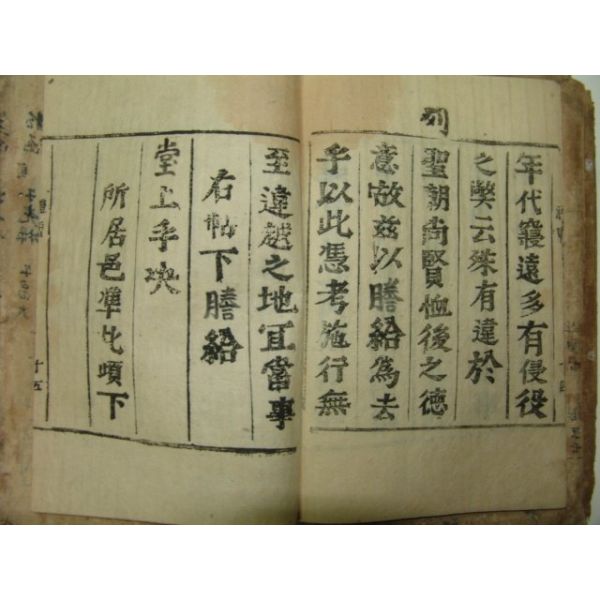 年代寖遠多有侵役
之獘云殊有違於
列
聖朝尙賢恤後之德
意故玆以謄給爲去
乎以此憑考施行無
至違越之地宜當事
右帖下謄給
堂上手決
所居邑準此頉下
十五